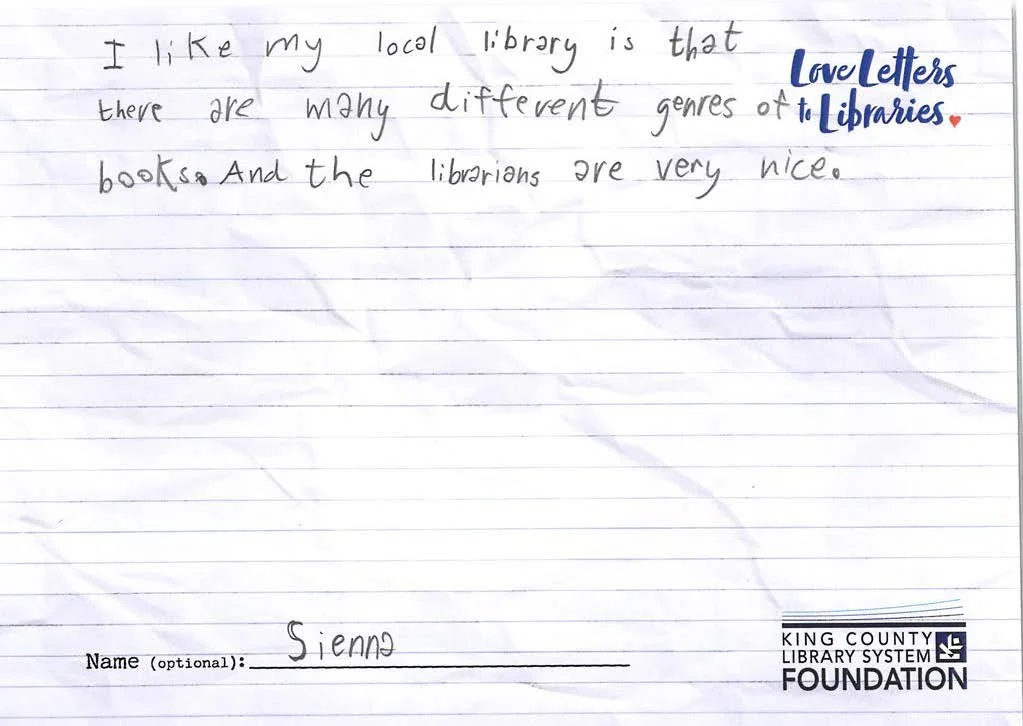 I like my local library is that
there are many different genres of
books. And the librarians are very nice.
Love Letters
to Libraries.
Name (optional): Sienna
KING COUNTY
LIBRARY SYSTEM
FOUNDATION